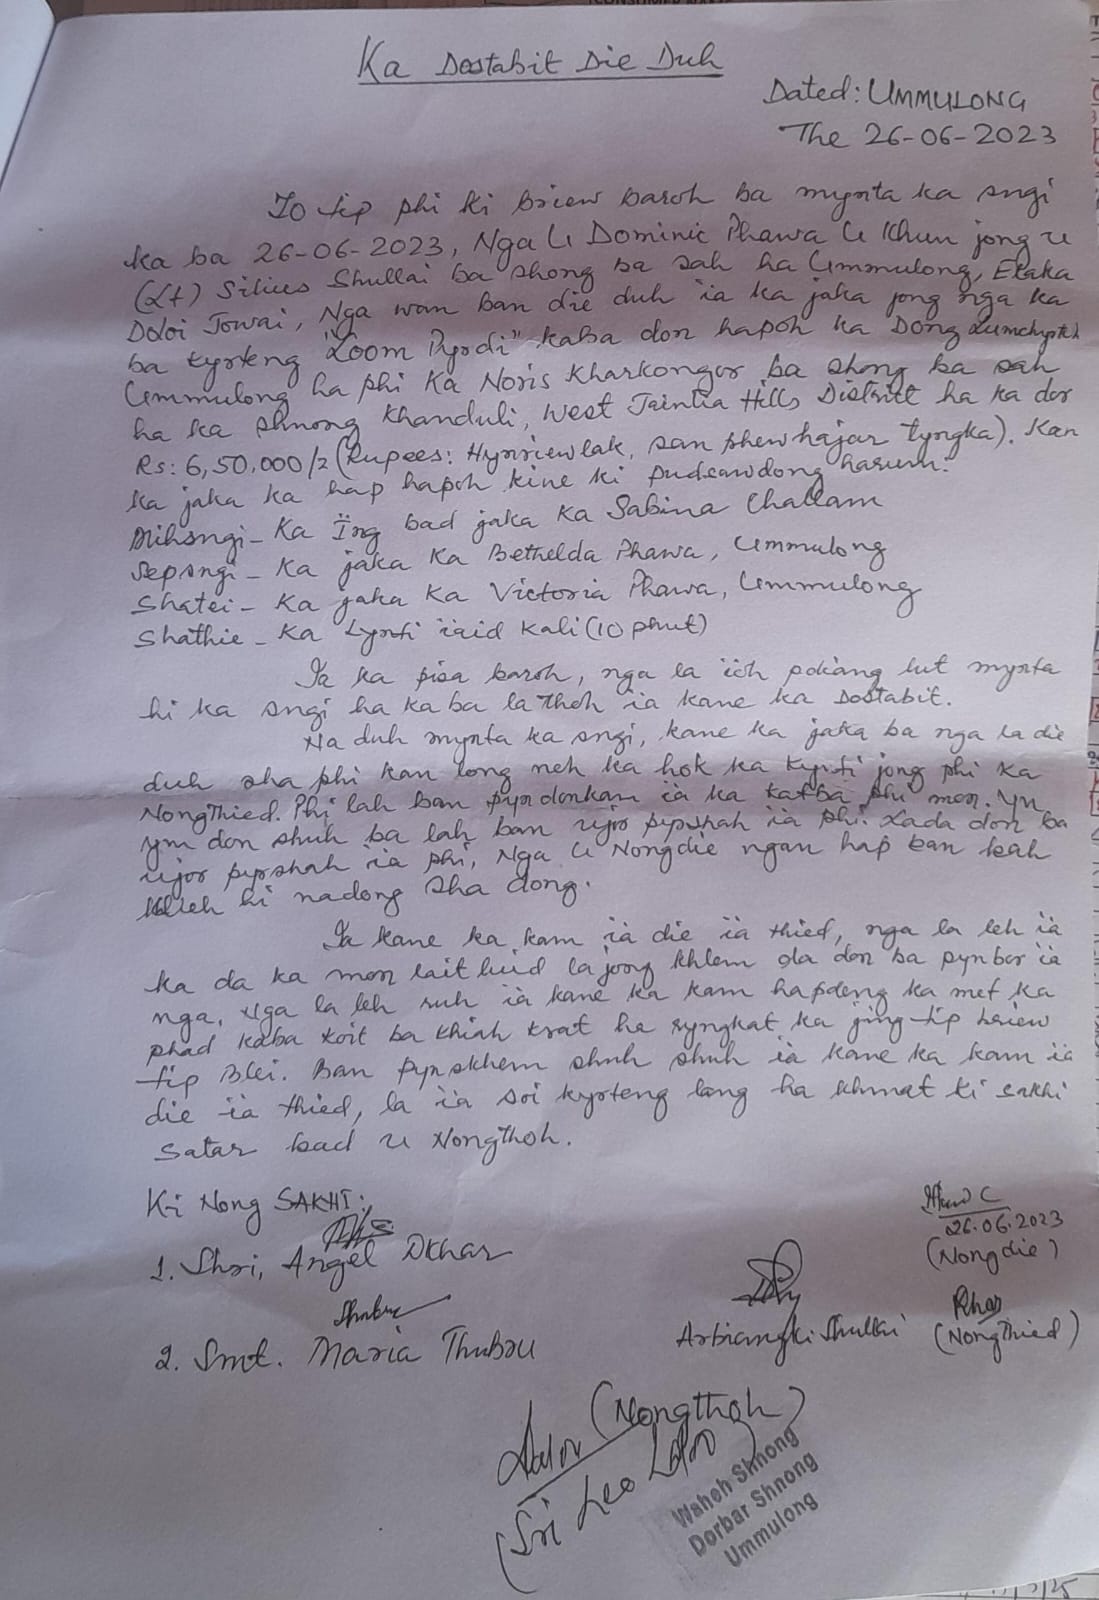 Ka Dostabit Die Duh
Dated: UMMULONG
The 26-06-2023
Io tip phi ki briew baroh ba mynta ka sngi
ka ba 26-06-2023, Nga U Dominic Phawa U Khun jong u
(Lt) Silius Shullai ba shong ba sah ha Ummulong, Elaka
Doloi Jowai, Nga wan ban die duh ïa ka jaka jong nga ka
ba kyrteng "Loom Pyrdi" kaba don hapoh ka Dong
Ummulong ha phi Ka Noris Kharkongor ba shong ba sah
ha ka shnong Khanduli, West Jaintia Hills District ha ka dor
Rs: 6,50,000/2 (Rupees: Hynriewlak, san phewhajar tyngka). Kan
ka jaka ka hap hapoh kine ki pudsawdong harum:
Mihsngi - Ka Ïng bad jaka Ka Sabina Challam
Sepsngi - Ka jaka Ka Bethelda Phawa, Ummulong
Shatei - Ka jaka Ka Victoria Phawa, Ummulong
Shathie - Ka Lynti ïaid Kali (10 phut)
Ia ka pisa baroh, nga la ïoh pdiang lut mynta
hi ka sngi ha kaba la thoh ïa kane ka Dostabit.
Na duh mynta ka sngi, kane ka jaka ba nga la die
duh sha phi kan long neh ka hok ka kynti jong phi Ka
NongThied. Phi lah ban pyndonkam ïa ka katba phi mon. Yn
ym don shuh ba lah ban ujor pyrshah ïa phi. Lada don ba
ujor pyrshah ïa phi, Nga U Nongdie ngan hap ban bah
khleh hi nadong sha dong.
Ia kane ka kam ïa die ïa thied, nga la leh ïa
ka da ka mon laitluid lajong khlem da don ba pynbor ïa
nga, Nga la leh ruh ïa kane ka kam hapdeng ka met ka
phad kaba koit ba khiah krat ha ryngkat ka jing-tip briew
tip Blei. Ban pynskhem shuh shuh ïa kane ka kam ïa
die ïa thied, la ïa soi kyrteng lang ha khmat ki sakhi
satar bad u Nongthoh.
Ki Nong SAKHI:
26.06.2023
(Nongdie)
1. Shri, Angel Dkhar
2. Smt. Maria Thubru
Arbiangki Shullai
(NongThied)
(Nongthoh)
(Sri Leo Laloo)
Waheh Shnong
Dorbar Shnong
Ummulong